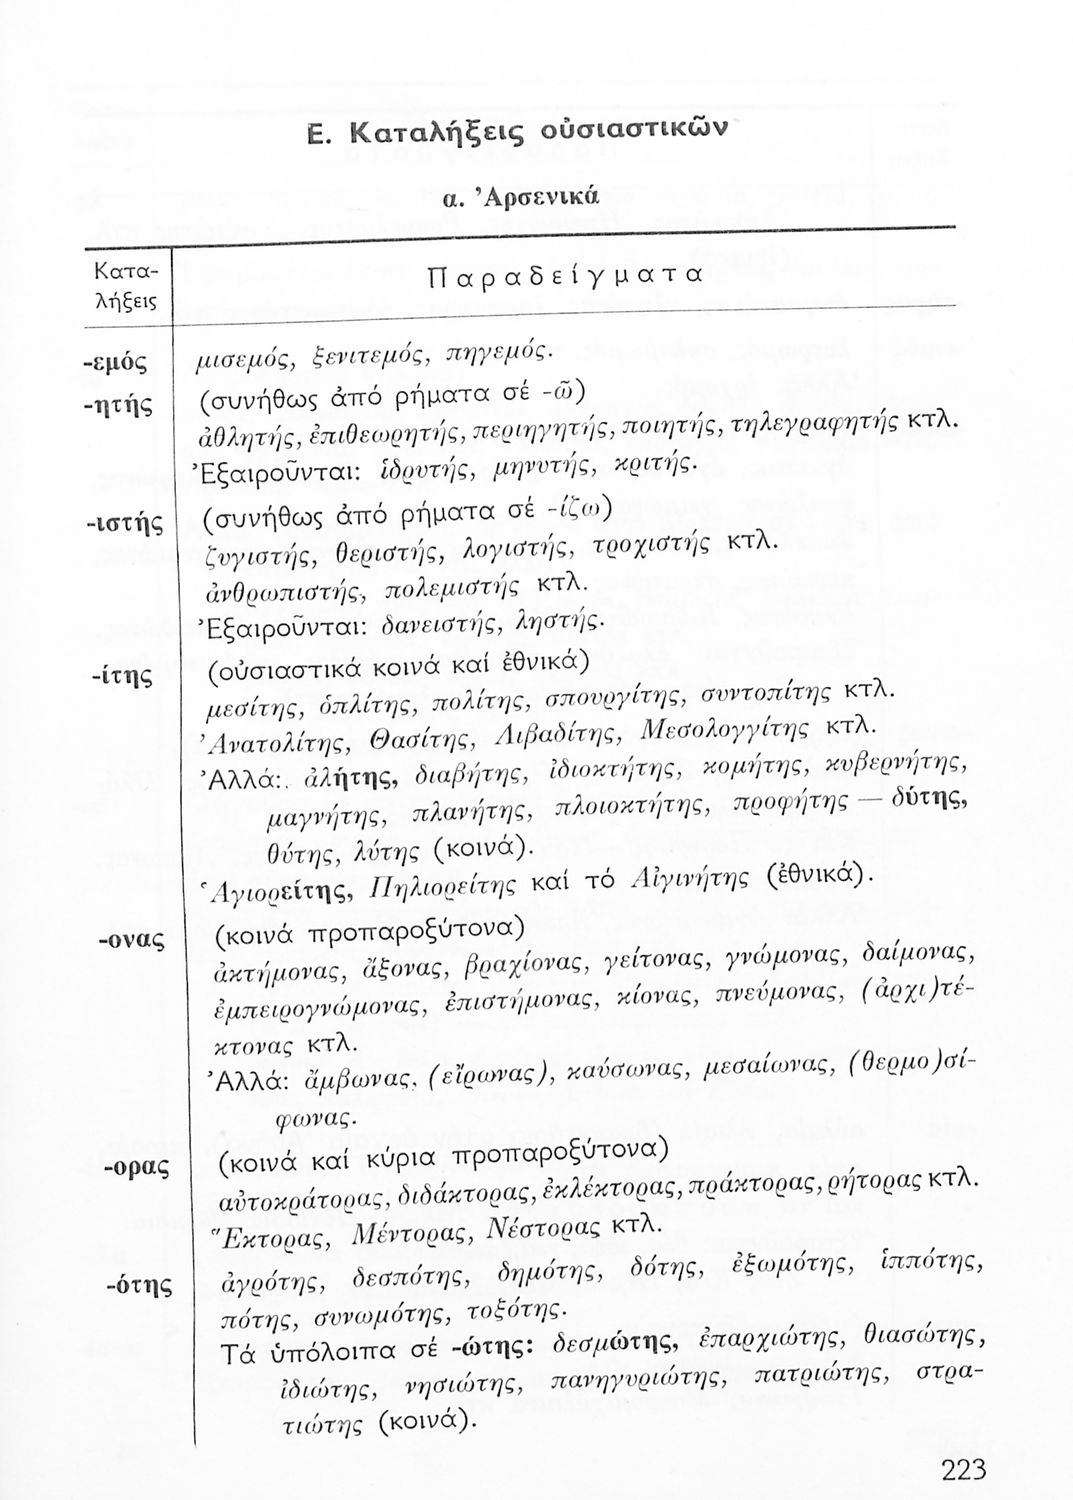 Ε. Καταλήξεις οὐσιαστικῶν
α. Ἀρσενικά
Κατα-
λήξεις
Παραδείγματα
-εμός μισεμός, ξενιτεμός, πηγεμός.
-ητής (συνήθως ἀπό ρήματα σέ -ῶ)
ἀθλητής, ἐπιθεωρητής, περιηγητής, ποιητής, τηλεγραφητής κτλ.
Ἐξαιροῦνται: ἱδρυτής, μηνυτής, κριτής.
-ιστής (συνήθως ἀπό ρήματα σέ -ίζω)
ζυγιστής, θεριστής, λογιστής, τροχιστής κτλ.
ἀνθρωπιστής, πολεμιστής κτλ.
Ἐξαιροῦνται: δανειστής, ληστής.
-ίτης (οὐσιαστικά κοινά καί ἐθνικά)
μεσίτης, ὁπλίτης, πολίτης, σπουργίτης, συντοπίτης κτλ.
Ἀνατολίτης, Θασίτης, Λιβαδίτης, Μεσολογγίτης κτλ.
Ἀλλά: ἀλήτης, διαβήτης, ἰδιοκτήτης, κομήτης, κυβερνήτης,
μαγνήτης, πλανήτης, πλοιοκτήτης, προφήτης — δύτης,
θύτης, λύτης (κοινά).
Ἁγιορείτης, Πηλιορείτης καί τό Αἰγινήτης (ἐθνικά).
-ονας (κοινά προπαροξύτονα)
ἀκτήμονας, ἄξονας, βραχίονας, γείτονας, γνώμονας, δαίμονας,
ἐμπειρογνώμονας, ἐπιστήμονας, κίονας, πνεύμονας, (ἀρχι)τέ-
κτονας κτλ.
Ἀλλά: ἄμβωνας, (εἴρωνας), καύσωνας, μεσαίωνας, (θερμο)σί-
φωνας.
-ορας (κοινά καί κύρια προπαροξύτονα)
αὐτοκράτορας, διδάκτορας, ἐκλέκτορας, πράκτορας, ρήτορας κτλ.
Ἕκτορας, Μέντορας, Νέστορας κτλ.
-ότης ἀγρότης, δεσπότης, δημότης, δότης, ἐξωμότης, ἱππότης,
πότης, συνωμότης, τοξότης.
Τά ὑπόλοιπα σέ -ώτης: δεσμώτης, ἐπαρχιώτης, θιασώτης,
ἰδιώτης, νησιώτης, πανηγυριώτης, πατριώτης, στρα-
τιώτης (κοινά).
223